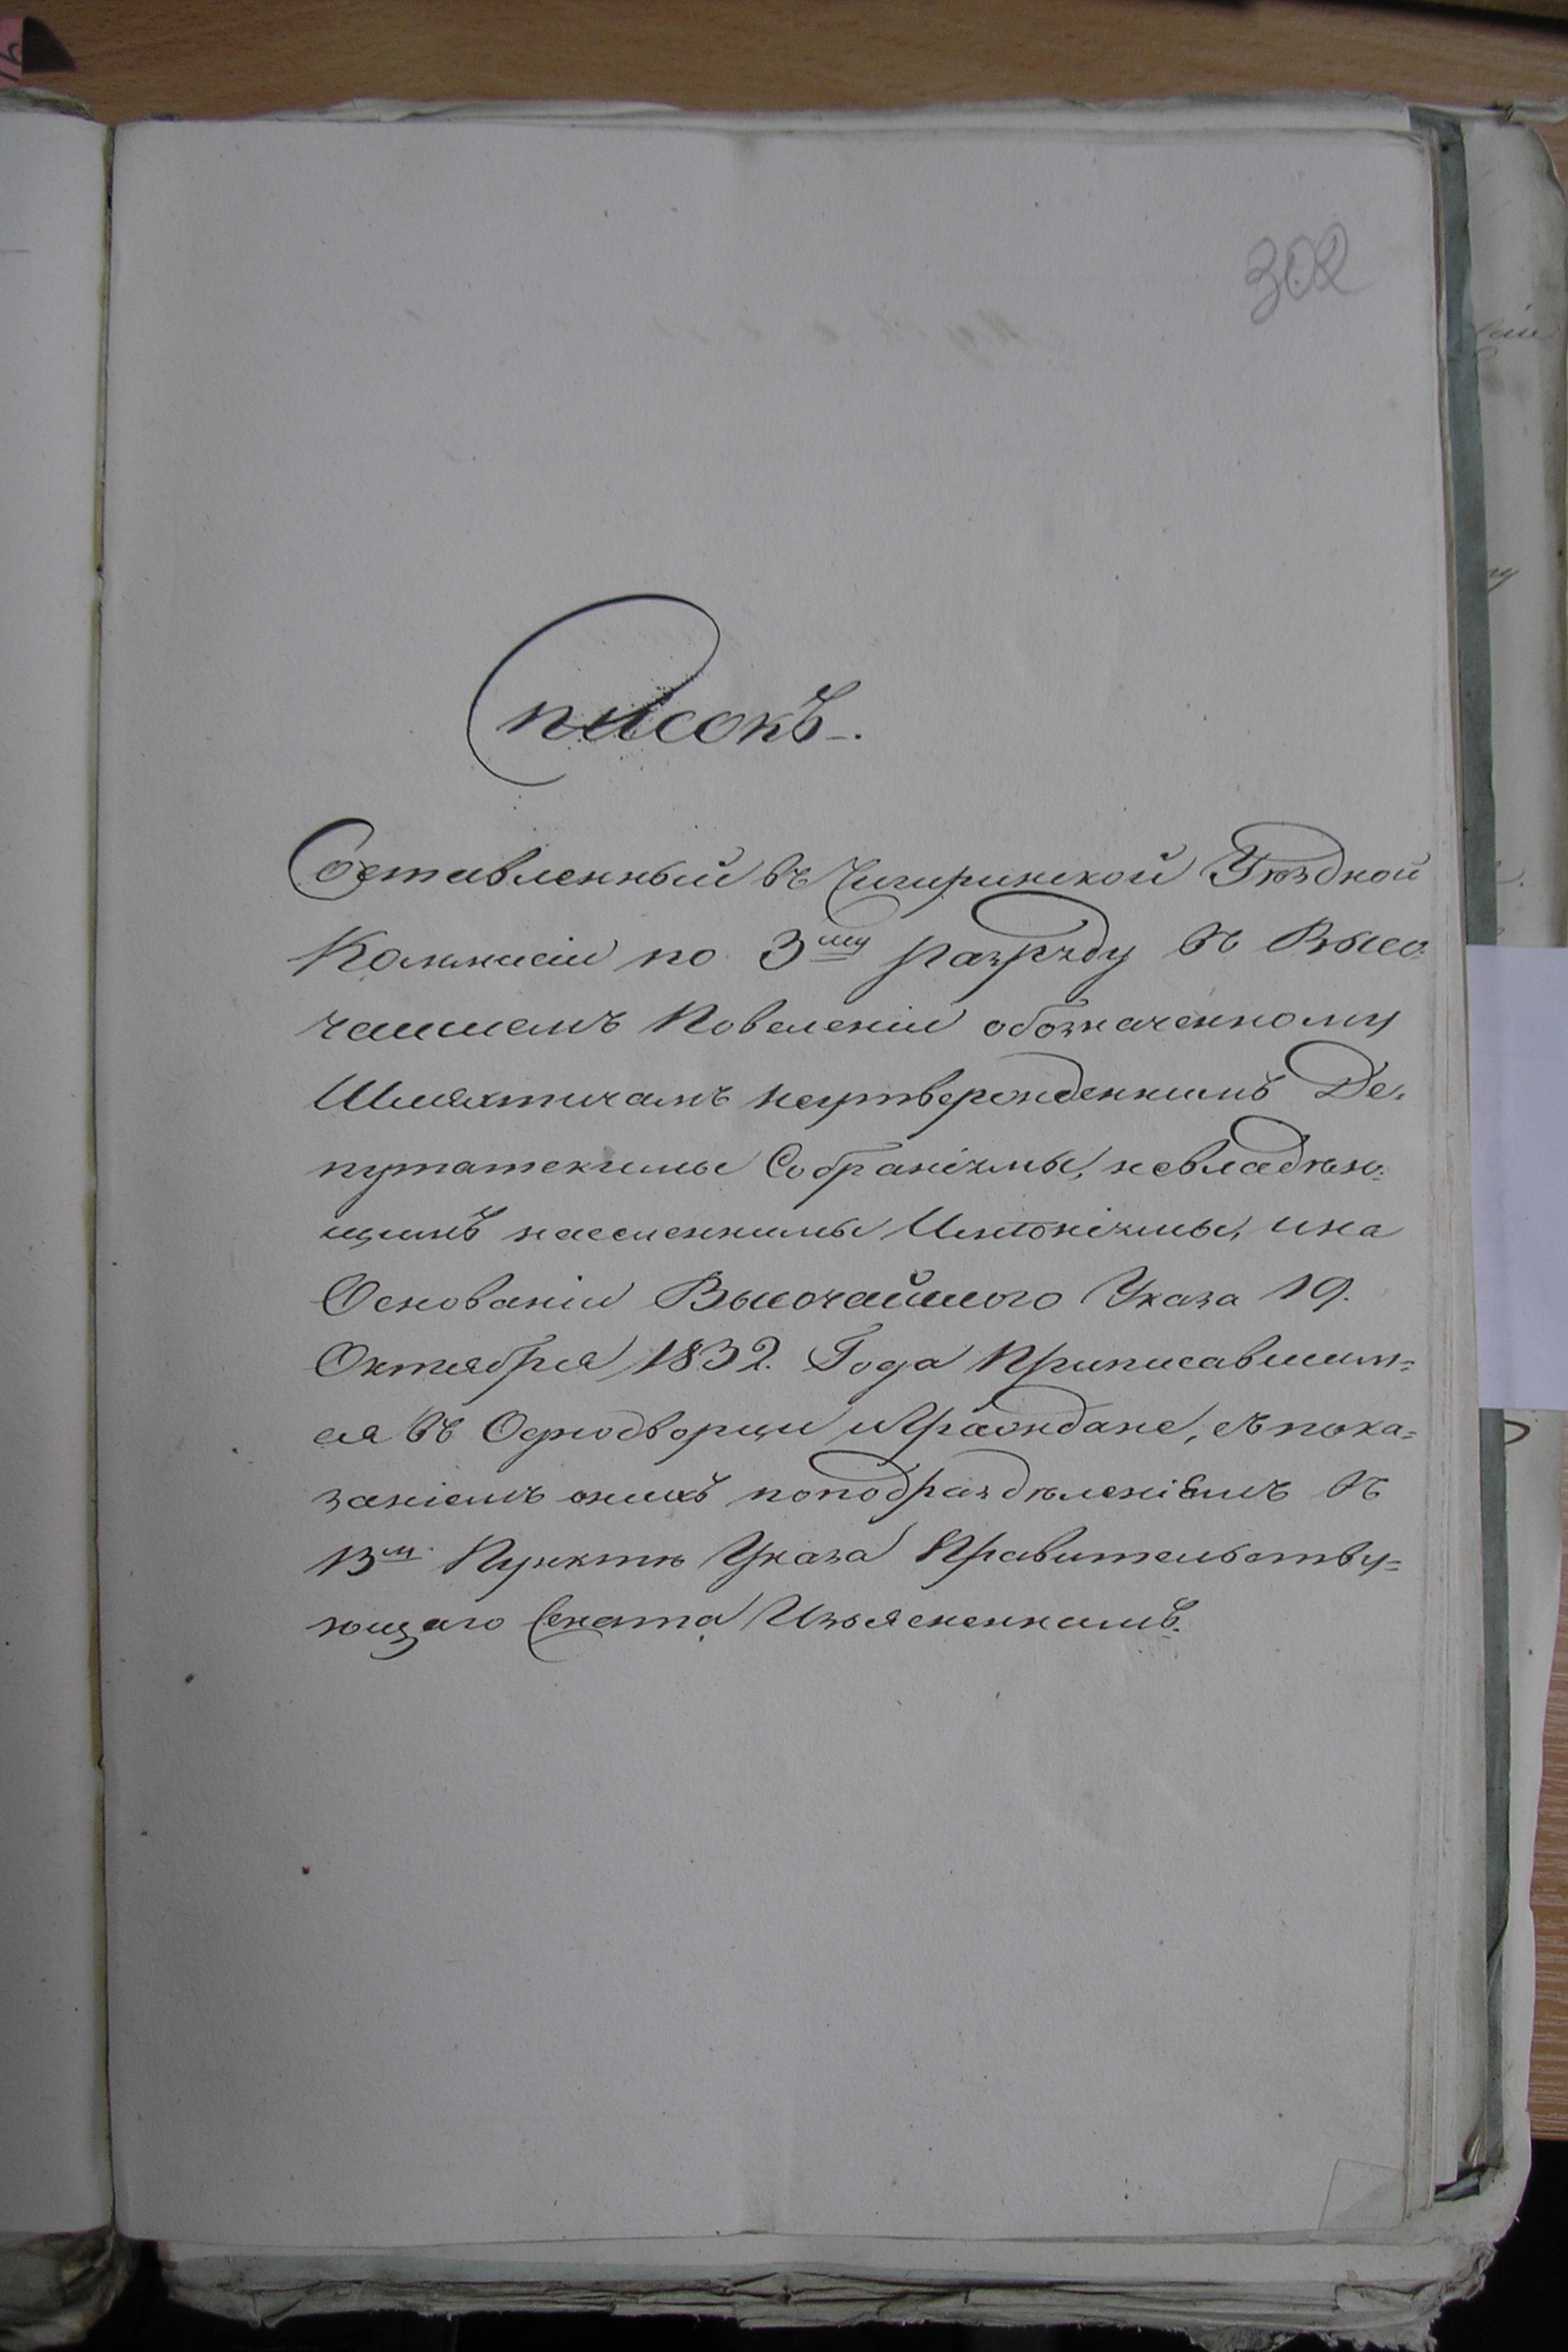 302
Списокъ.
Составленный въ Чигиринской Уѣздной
Коммисіи по 3му разряду въ Высо-
чаишемъ Повеленіи обозначенному
Шляхтичамъ неутвержденнимъ Де-
путатскимы Собраніямы, невладѣю-
щимъ населеннимы Имѣніямы, ина
Основаніи Высочайшого Указа 19.
Октября 1832. Года Приписавшим-
ся въ Однодворци иГраждане, съ пока-
заніемъ онихъ поподраздѣленіямъ въ
13м. Пунктѣ Указа Правительству-
ющаго Сената Изъясненнимъ.